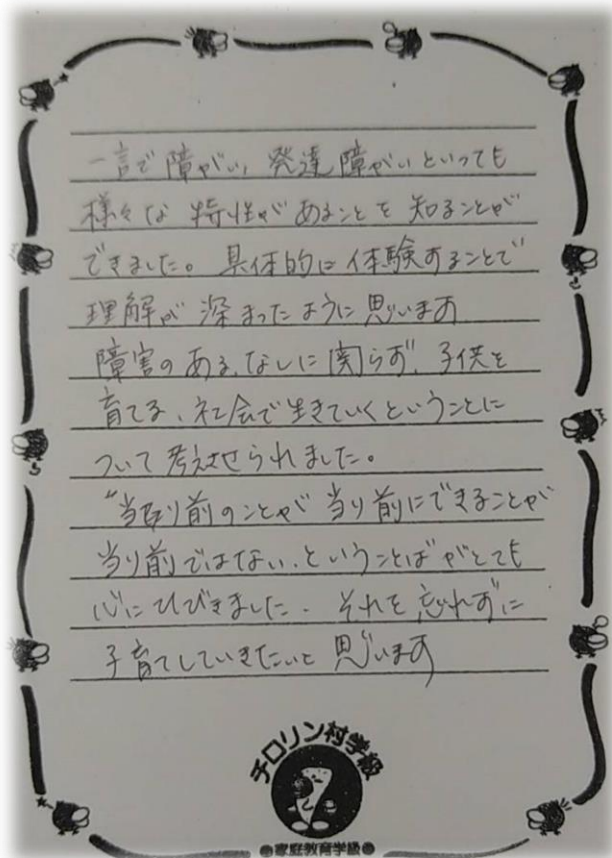 一言で障がい、発達障がいといっても
様々な特性があることを知ることが
できました。具体的に体験することで
理解が深まったように思います
障害のある、なしに関らず、子供を
育てる、社会で生きていくということに
ついて考えさせられました。
"当り前のことが当り前にできることが
当り前ではない、ということばがとても
心にひびきました. それを忘れずに
子育てしていきたいと思います
チロリン村学級
家庭教育学級